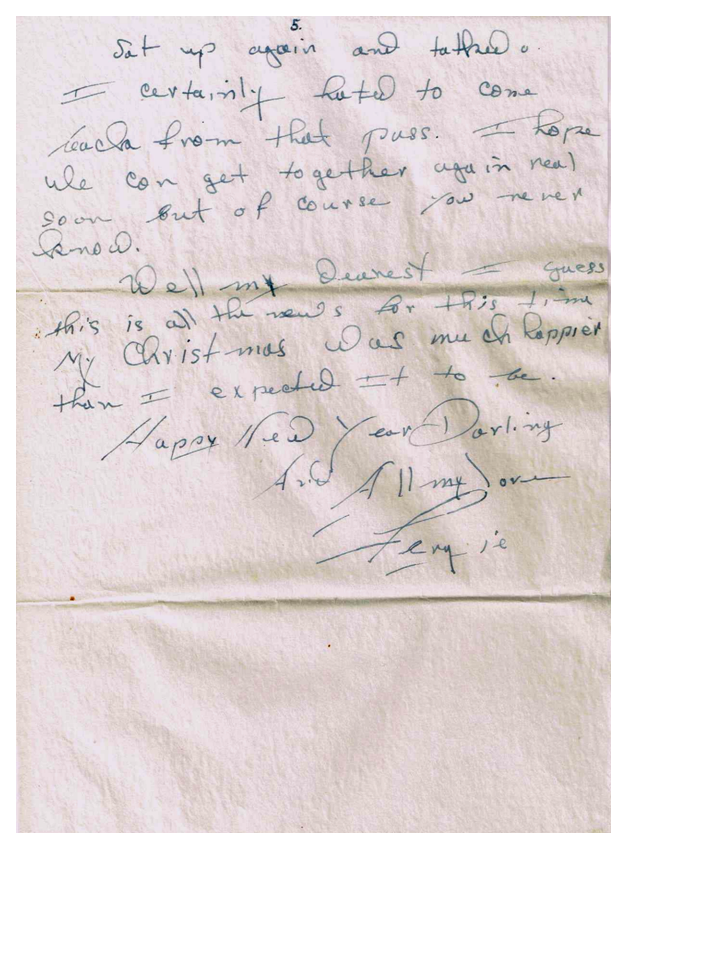 5.
Sat up again and talked.
I certainly hated to come
back from that pass. I hope
We can get together again real
soon but of course you never
know.
Well my Dearest I guess
this is all the news for this time
My Christmas was much happier
than I expected It to be.
Happy New Year Darling
And All my love
Fergie